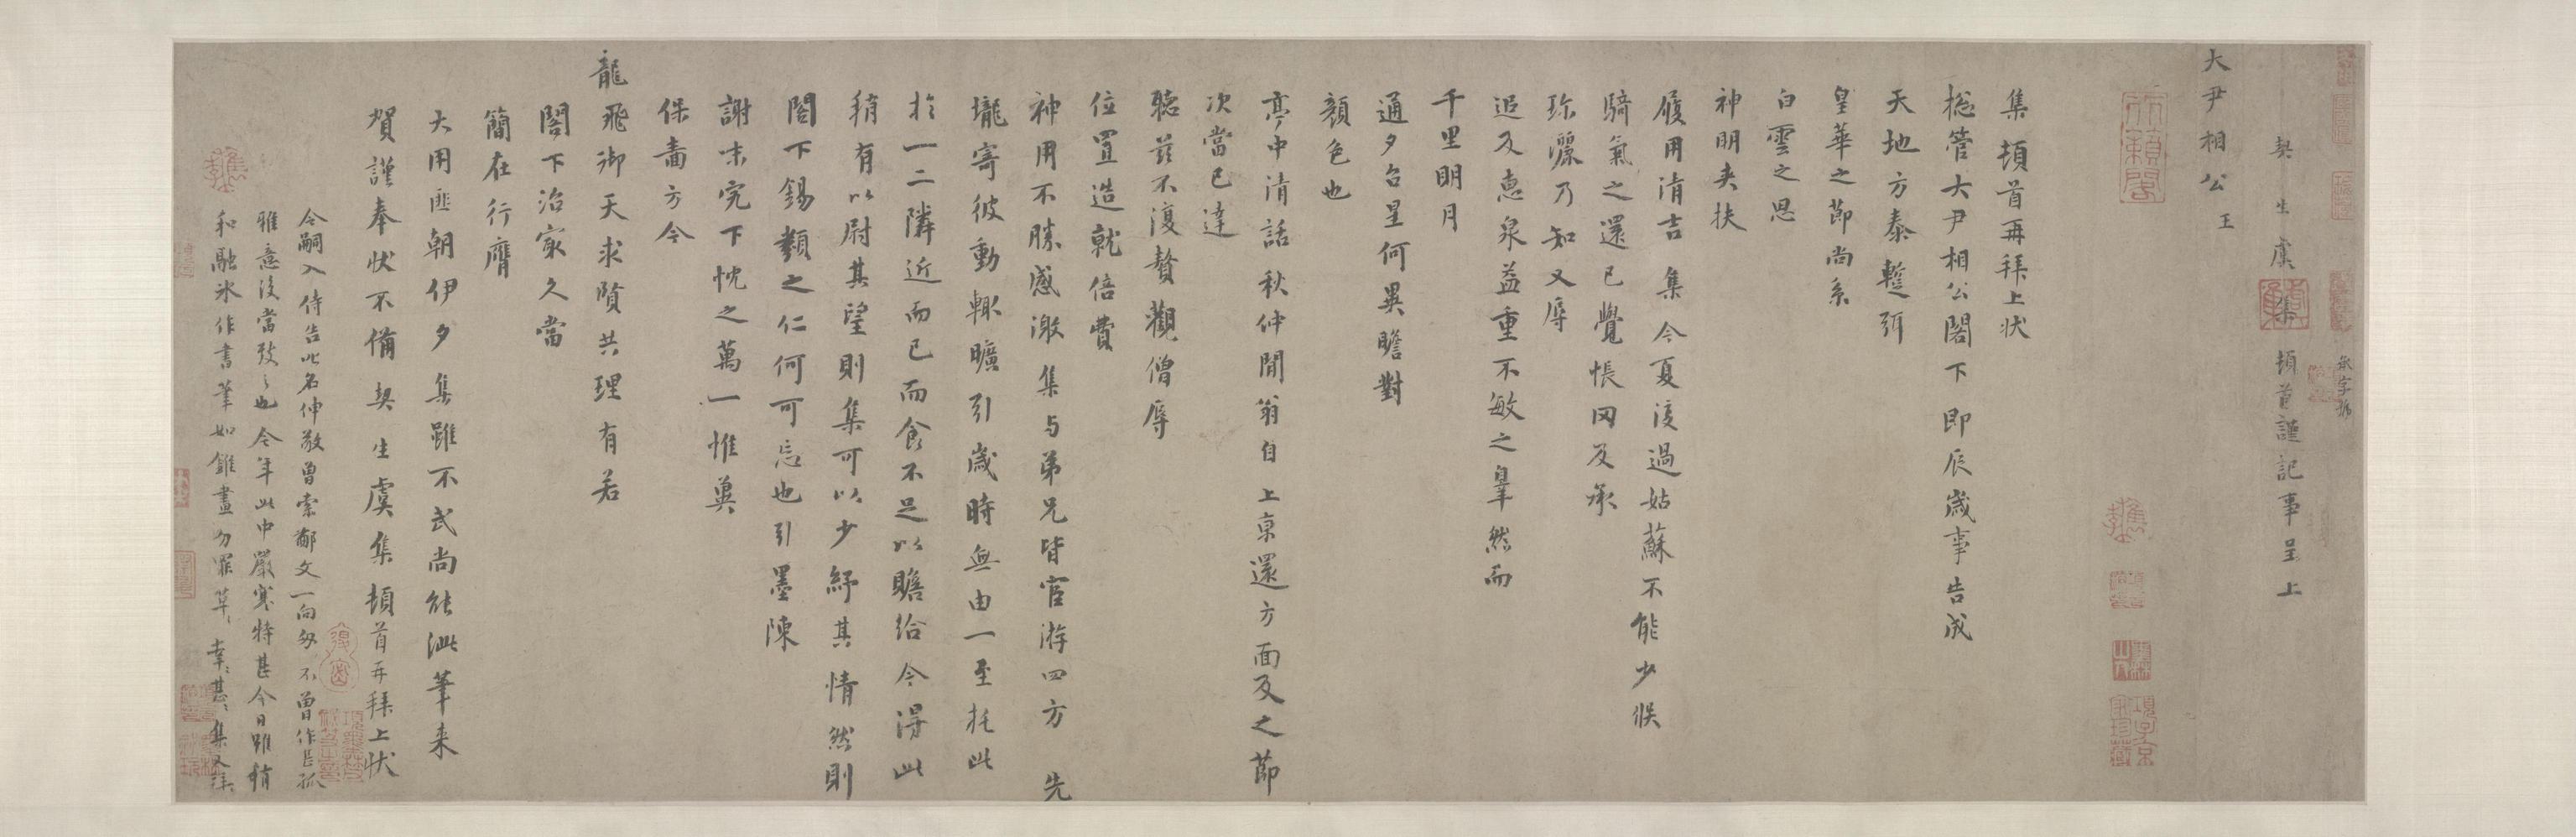 契生虞集頓首謹記事呈上
大尹相公 王
集頓首再拜上狀
揔管大尹相公閣下即辰歲事告成
天地方泰蹔弭
皇華之節尚系
白雲之思
神明夾扶
履用清吉集今夏後過姑蘇不能少佚
騎氣之還已覺悵罔及承
珎灑乃知又辱
追及惠泉益重不敏之辠然而
千里明月
通夕台星何異瞻對
顏色也
亭中清話秋仲閒翁自上京還方面及之節
次當已達
聽茲不復贅觀僧辱
位置造就倍費
神用不勝感激集与弟兄皆宦游四方先
壠寄彼動輒曠引歲時無由一至托此
於一二隣近而已而食不足以贍給今得此
稍有以尉其望則集可以少紓其情然則
閣下錫類之仁何可忘也引墨陳
謝未究下忱之萬一惟冀
保嗇方今
龍飛御天求賢共理有若
閣下治最久當
簡在行膺
大用匪朝伊夕集雖不武尚能泚筆来
賀謹奉狀不備契生虞集頓首再拜上狀
令嗣入侍告此名伸敬曾索鄙文一向匆不曾作甚孤
雅意後當致之也今年此中嚴寒特甚今日雖稍
和融氷作書筆如錐畫勿罪草〻幸〻甚〻集又拜